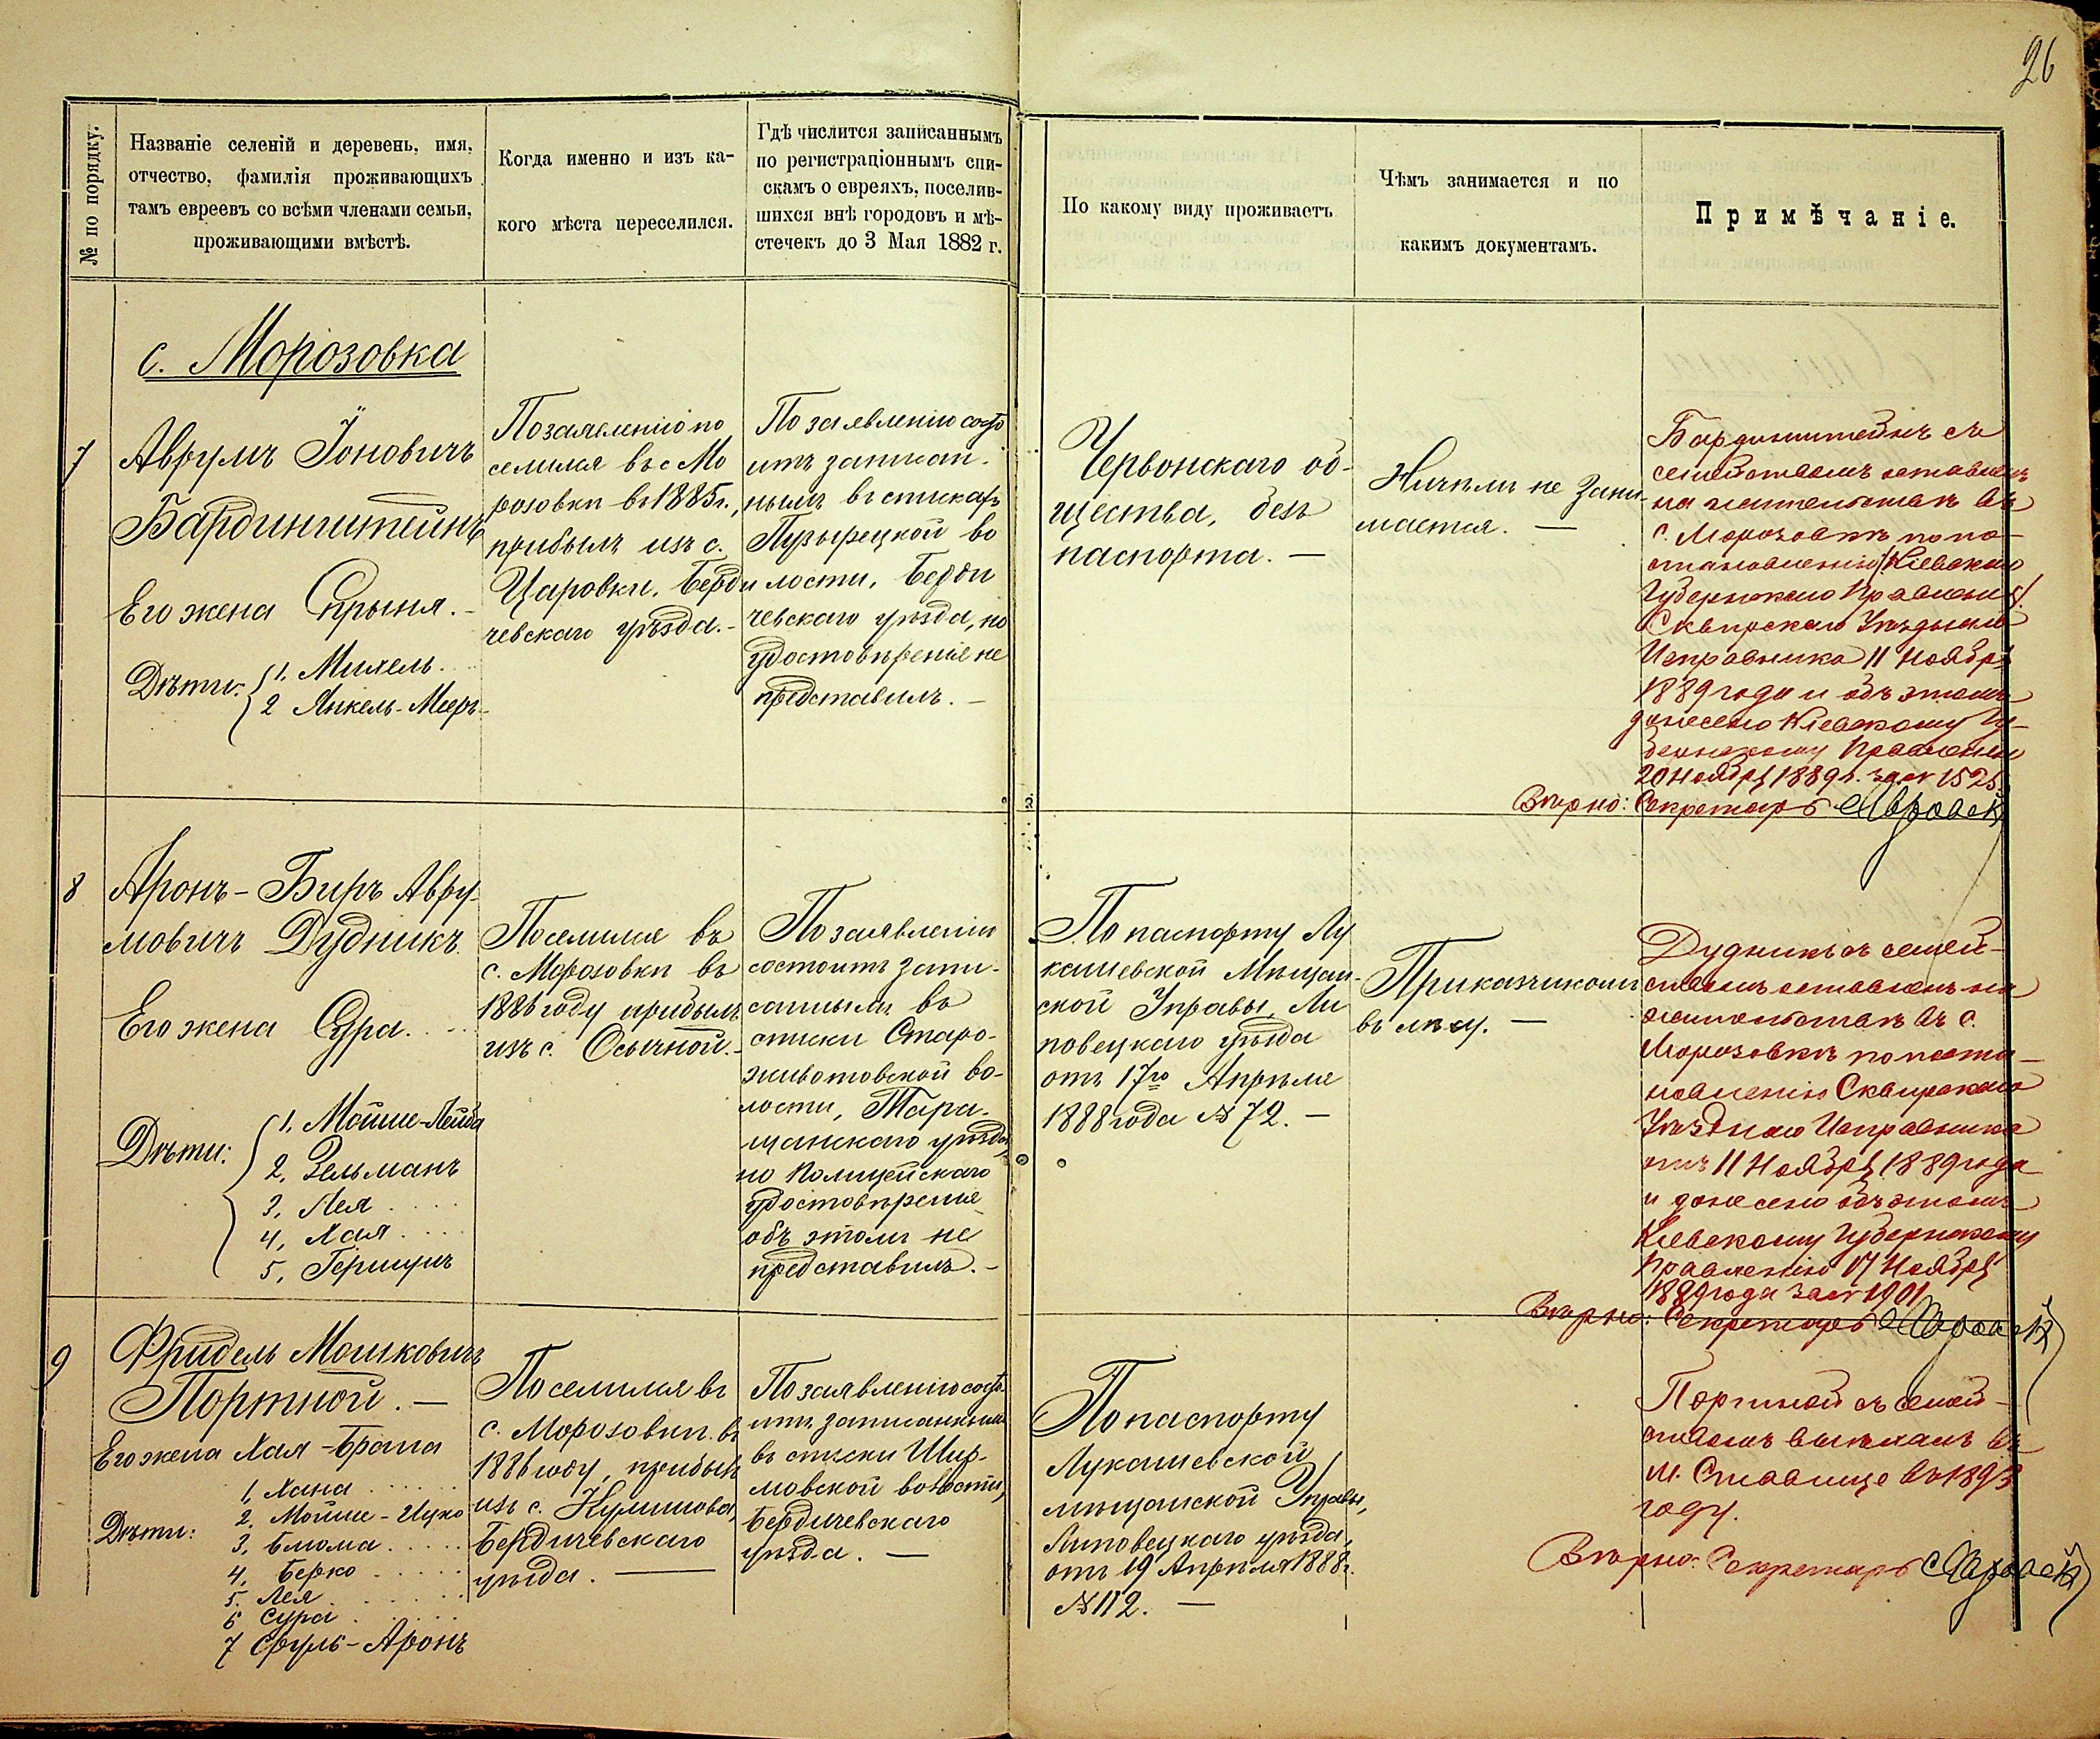 26
№ по порядку.
Названіе селеній и деревень, имя,
отчество, фамилія проживающихъ
тамъ евреевъ со всѣми членами семьи,
проживающими вмѣстѣ.
Когда именно и изъ ка-
кого мѣста переселился.
Гдѣ числится записаннымъ
по регистраціоннымъ спи-
скамъ о евреяхъ, поселив-
шихся внѣ городовъ и мѣ-
стечекъ до 3 Мая 1882 г.
По какому виду проживаетъ
Чѣмъ занимается и по
какимъ документамъ.
Примѣчаніе.
с. Морозовка
7
Аврумъ Іоновичъ
Бардинштейнъ
Его жена Спрыня.
Дѣти:
1. Михель.
2 Янкель-Мееръ-
По заявленію по
селился въ с Мо
розовки въ 1885 г.,
прибылъ изъ с.
Царовки, Берди
чевскаго уѣзда.-
По заявленію состо
итъ записан-
нымъ въ спискахъ
Пузырецкой во
лости, Берди
чевскаго уѣзда, но
удостовѣренія не
представилъ.-
Червонскаго об-
щества, безъ
паспорта.-
Ничѣмъ не зани-
мается.-
Бардинштейнъ съ
семействомъ оставленъ
на жительствѣ въ
с. Морозовкѣ по по-
становленію Кіевскаго
Губернскаго Правленія
Сквирскаго Уѣзднаго
Исправника 11 Ноября
1889 года и объ этомъ
донесено Кіевскому Гу-
бернскому Правленію
20 Ноября 1889 г. за № 1525
Вѣрно: Секретарь
8
Аронъ-Биръ Авру-
мовичъ Дудникъ.
Его жена Сура.
Дѣти:
1. Мойше-Лейба
2. Зельманъ
3. Лея
4. Хая
5. Гершунъ
Поселился въ
с. Морозовки въ
1886 году прибылъ
изъ с. Осычной.-
По заявленію
состоитъ запи-
саннымъ въ
списки Старо-
животовской во-
лости, Тара-
щанскаго уѣзда,
но полицейскаго
удостовѣренія
объ этомъ не
представилъ.-
По паспорту Лу
кашевской Мѣщан-
ской Управы, Ли
повецкаго уѣзда
отъ 17го Апрѣля
1888 года № 72.-
Приказчикомъ
въ лѣсу.-
Дудникъ съ семей-
ствомъ оставленъ на
жительствѣ въ с.
Морозовкѣ по поста-
новленію Сквирскаго
Уѣзднаго Исправника
отъ 11 Ноября 1889 года
и донесено объ этомъ
Кіевскому Губернскому
Правленію 17 Ноября
1889 года за № 1901
Вѣрно: Секретарь
9
Фридель Мошковичъ
Портной.-
Его жена Хая-Брана
Дѣти:
1. Хана
2. Мойше-Ицко
3. Блюма
4. Берко
5. Лея
6 Сура
7 Сруль-Аронъ
Поселился въ
с. Морозовки въ
1886 году, прибылъ
изъ с.
Бердичевскаго
уѣзда.-
По заявленію состо-
итъ записаннымъ
въ списки Шир-
мовской волости,
Бердичевскаго
уѣзда.-
По паспорту
Лукашевской
мѣщанской Управы,
Липовецкаго уѣзда,
отъ 19 Апрѣля 1888 г.
№ 112.-
Портной съ семей-
ствомъ выѣхалъ въ
м. Ставище въ 1893
году.
Вѣрно: Секретарь